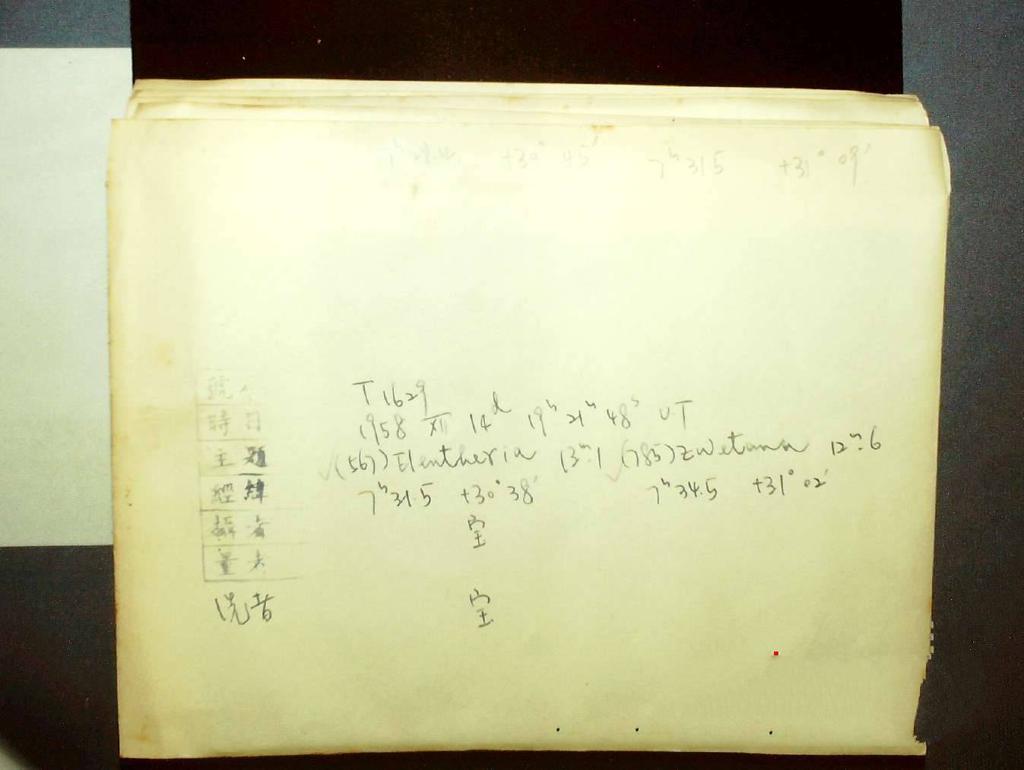 +30° 45′ 7ʰ 31.5 +31° 09′
號 T 1629
時日 1958 XII 14ᵈ 19ʰ 21ᵐ 48ˢ UT
主題 √(567) Eleutheria 13ᵐ.1 √(785) Zwetana 12ᵐ.6
經緯 7ʰ 31.5 +30° 38′ 7ʰ 34.5 +31° 02′
攝者 宝
量去
洗者 宝